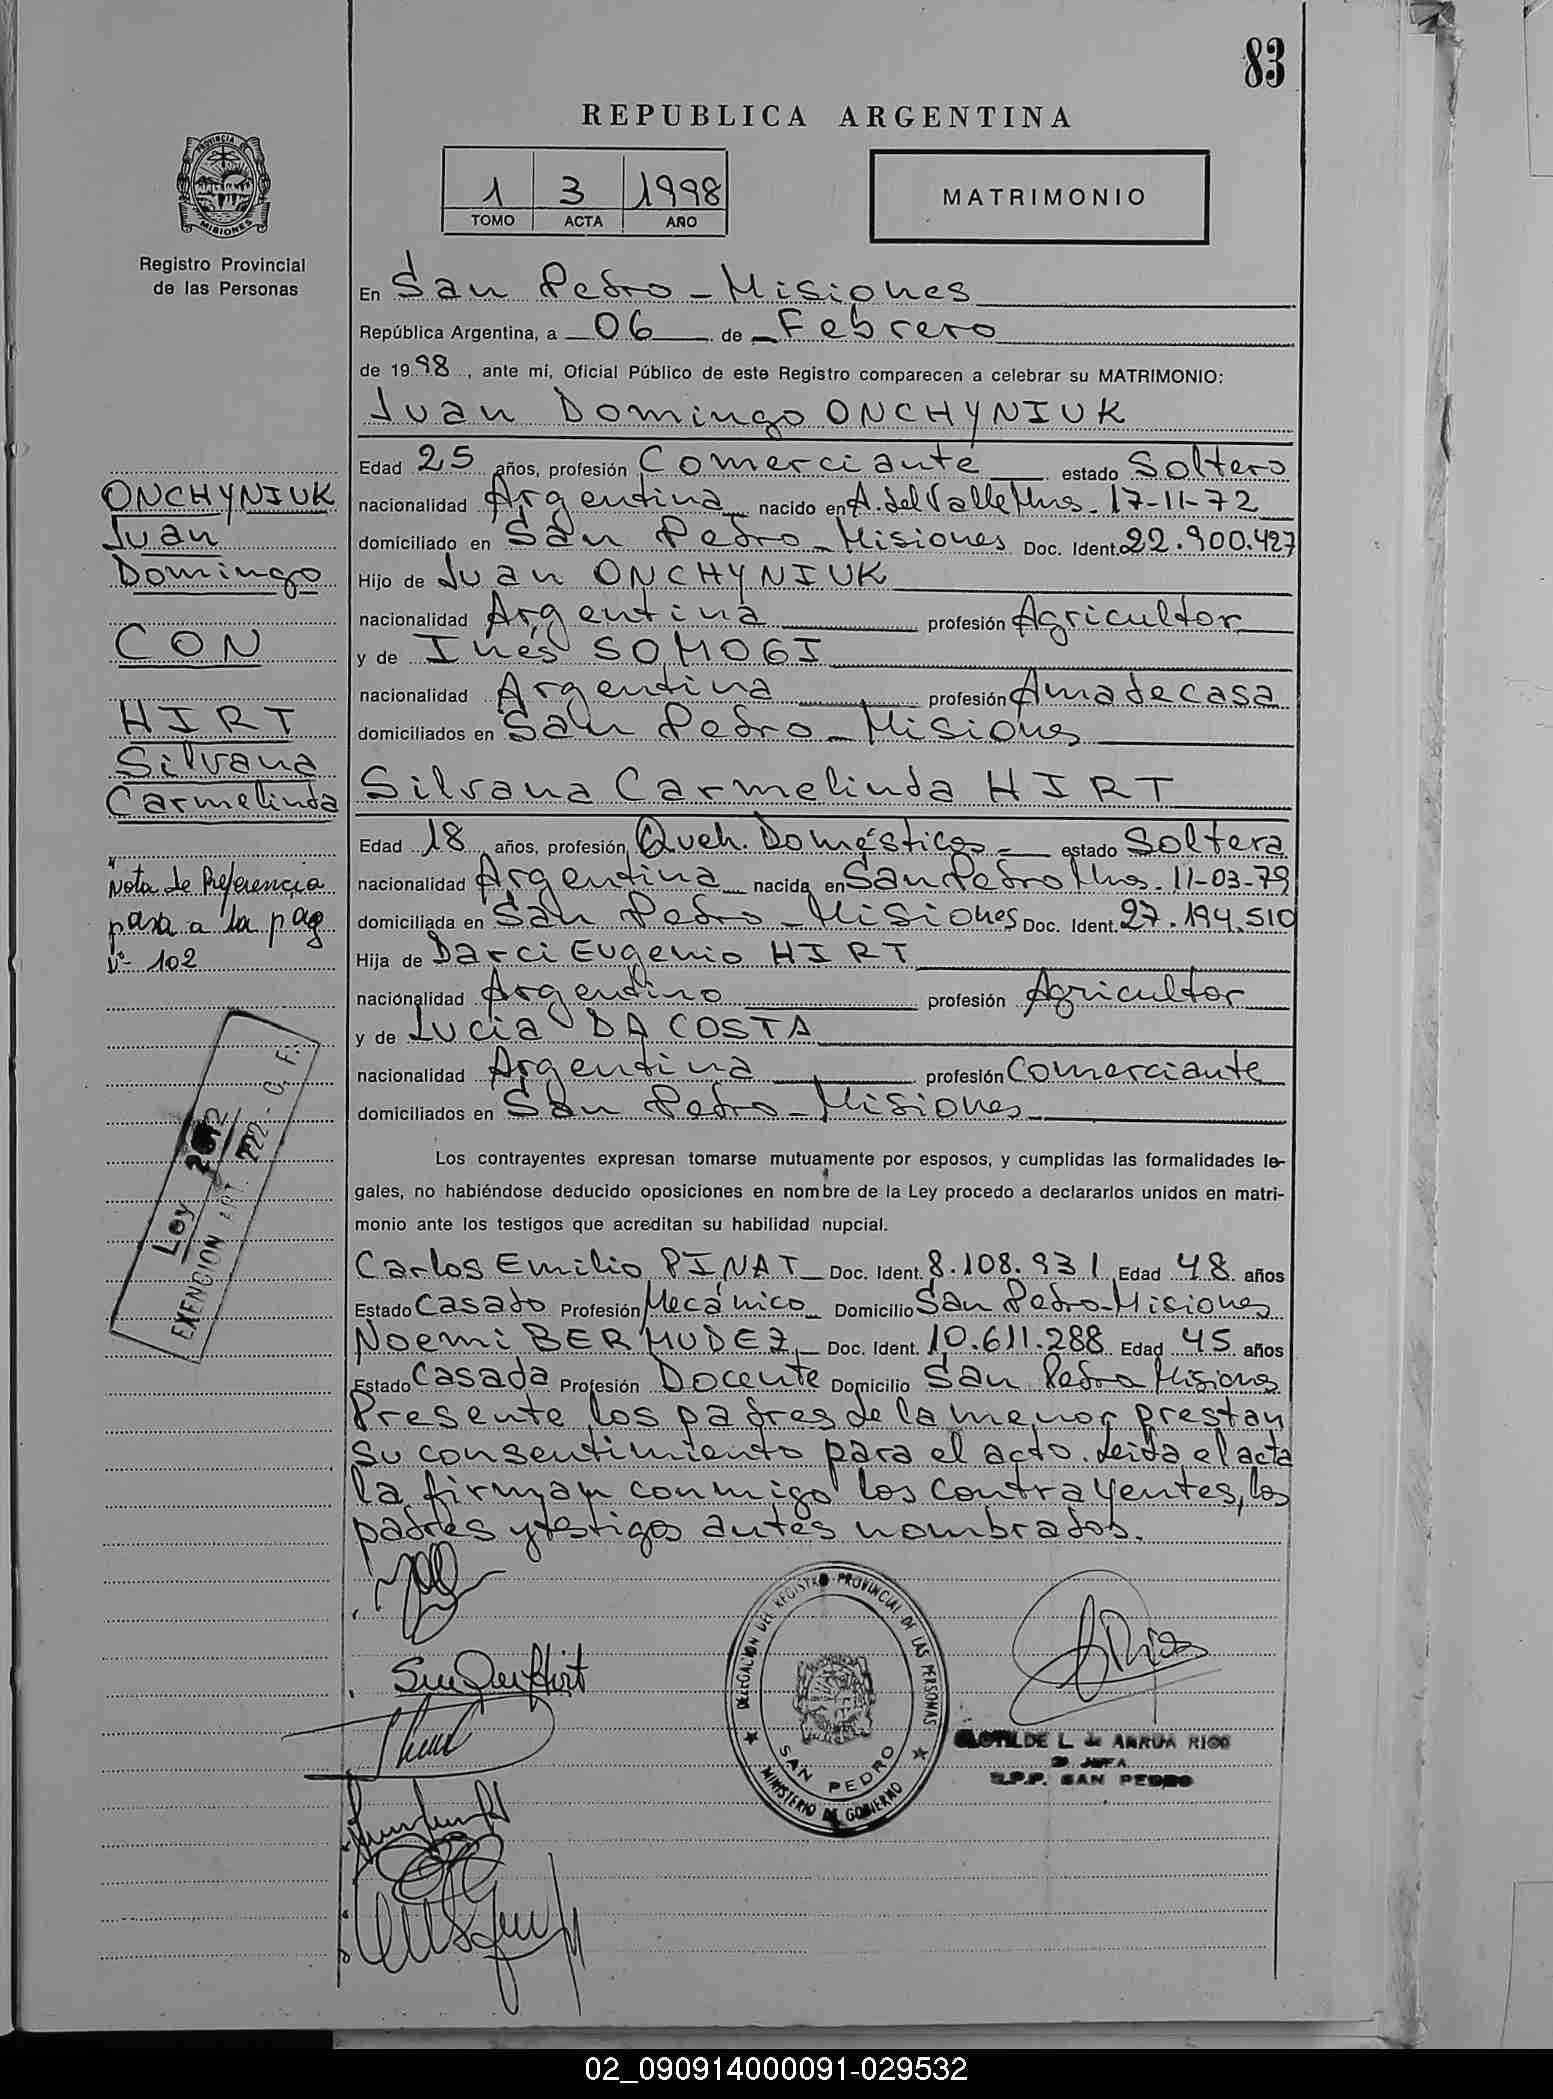 83
REPUBLICA ARGENTINA
1 3 1998
TOMO ACTA AÑO
MATRIMONIO
PROVINCIA DE
MISIONES
Registro Provincial
de las Personas
En San Pedro - Misiones
República Argentina, a 06 de Febrero
de 1998, ante mí, Oficial Público de este Registro comparecen a celebrar su MATRIMONIO:
Juan Domingo ONCHYNIUK
Edad 25 años, profesión Comerciante estado Soltero
nacionalidad Argentina nacido en A. del Valle Mnes. 17-11-72
domiciliado en San Pedro - Misiones Doc. Ident. 22.900.427
Hijo de Juan ONCHYNIUK
nacionalidad Argentina profesión Agricultor
y de Inés SOMOGI
nacionalidad Argentina profesión Ama de casa
domiciliados en San Pedro - Misiones
Silvana Carmelinda HIRT
Edad 18 años, profesión Queh. Domésticos estado Soltera
nacionalidad Argentina nacida en San Pedro Mnes. 11-03-79
domiciliada en San Pedro - Misiones Doc. Ident. 27.194.510
Hija de Darci Eugenio HIRT
nacionalidad Argentino profesión Agricultor
y de Lucia DA COSTA
nacionalidad Argentina profesión Comerciante
domiciliados en San Pedro - Misiones
Los contrayentes expresan tomarse mutuamente por esposos, y cumplidas las formalidades le-
gales, no habiéndose deducido oposiciones en nombre de la Ley procedo a declararlos unidos en matri-
monio ante los testigos que acreditan su habilidad nupcial.
Carlos Emilio PINAT Doc. Ident. 8.108.931 Edad 48 años
Estado Casado Profesión Mecánico Domicilio San Pedro - Misiones
Noemi BERMUDEZ Doc. Ident. 10.611.288 Edad 45 años
Estado Casada Profesión Docente Domicilio San Pedro Misiones
Presente los padres de la menor prestan
su consentimiento para el acto. Leida el acta
la firman conmigo los contrayentes, los
padres y testigos antes nombrados.
ONCHYNIUK
Juan
Domingo
CON
HIRT
Silvana
Carmelinda
"Nota de Referencia
pasa a la pag
Nº 102
Ley
EXENCION ART. 722 - C. F.
DELEGACION DEL REGISTRO PROVINCIAL DE LAS PERSONAS
SAN PEDRO
MINISTERIO DE GOBIERNO
CLOTILDE L. de ARRUA RICO
JEFA
R.P.P. SAN PEDRO
02_090914000091-029532